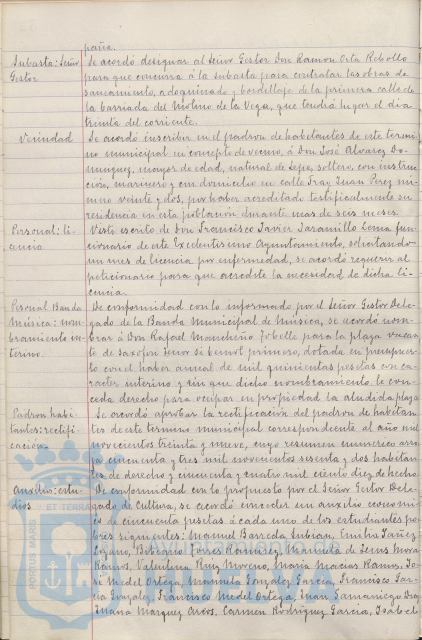 paña.
Subasta: Señor Gestor
Se acordó designar al Señor Gestor Don Ramon Orta Rebollo
para que concurra á la subasta para contratar las obras de
saneamiento, adoquinado y bordillaje de la primera calle de
la barriada del Molino de la Vega, que tendrá lugar el dia
treinta del corriente.
Vecindad
Se acordó inscribir en el padron de habitantes de este termi-
no municipal en concepto de vecino, á Don José Alvarez Do-
minguez, mayor de edad, natural de Lepe, soltero, con instruc-
cion, marinero y con domicilio en calle Fray Juan Perez nu-
mero veinte y dos, por haber acreditado testificalmente su
residencia en esta poblacion durante mas de seis meses.
Personal: li-
cencia
Visto escrito de Don Francisco Javier Jaramillo Lema fun-
cionario de este Excelentisimo Ayuntamiento, solicitando
un mes de licencia por enfermedad, se acordó requerir al
peticionario para que acredite la necesidad de dicha li-
cencia.
Personal Banda
Musica: nom-
bramiento in-
terino.
De conformidad con lo informado por el Señor Gestor Dele-
gado de la Banda Municipal de Música, se acordó nom-
brar á Don Rafael para la plaza vacan-
te de Saxofon Tenor si bemol primero, dotada en presupues-
to con el haber anual de mil quinientas pesetas con ca-
racter interino y sin que dicho nombramiento le con-
ceda derecho para ocupar en propiedad la aludida plaza
Padron habi-
tantes: rectifi-
cación.
Se acordó aprobar la rectificación del padron de habitan-
tes de este termino municipal correspondiente al año mil
novecientos treinta y nueve, cuyo resumen numerico arro-
ja cincuenta y tres mil novecientos sesenta y dos habitan-
tes de derecho y cincuenta y cuatro mil ciento diez de hecho.
Auxilio: estu-
dios
De conformidad con lo propuesto por el Señor Gestor Dele-
gado de Cultura, se acordó conceder un auxilio economi-
co de cincuenta pesetas á cada uno de los estudiantes po-
bres siguientes: Manuel Barceda Emilia Yañez
Lozano, Torres Ramirez, Manuela de Mora
Ramos, Valentina Ruiz Moreno, Maria Macias Ramos, Jo-
sé Medel Ortega, Manuela Gonzalez Garcia, Francisco Gar-
cia Gonzalez, Francisco Medel Ortega, Juan Samaniego Diaz
Juana Marquez Arcos, Carmen Rodriguez Garcia, Isabel
PORTUS MARIS ET TERRAE
Ayuntamiento de